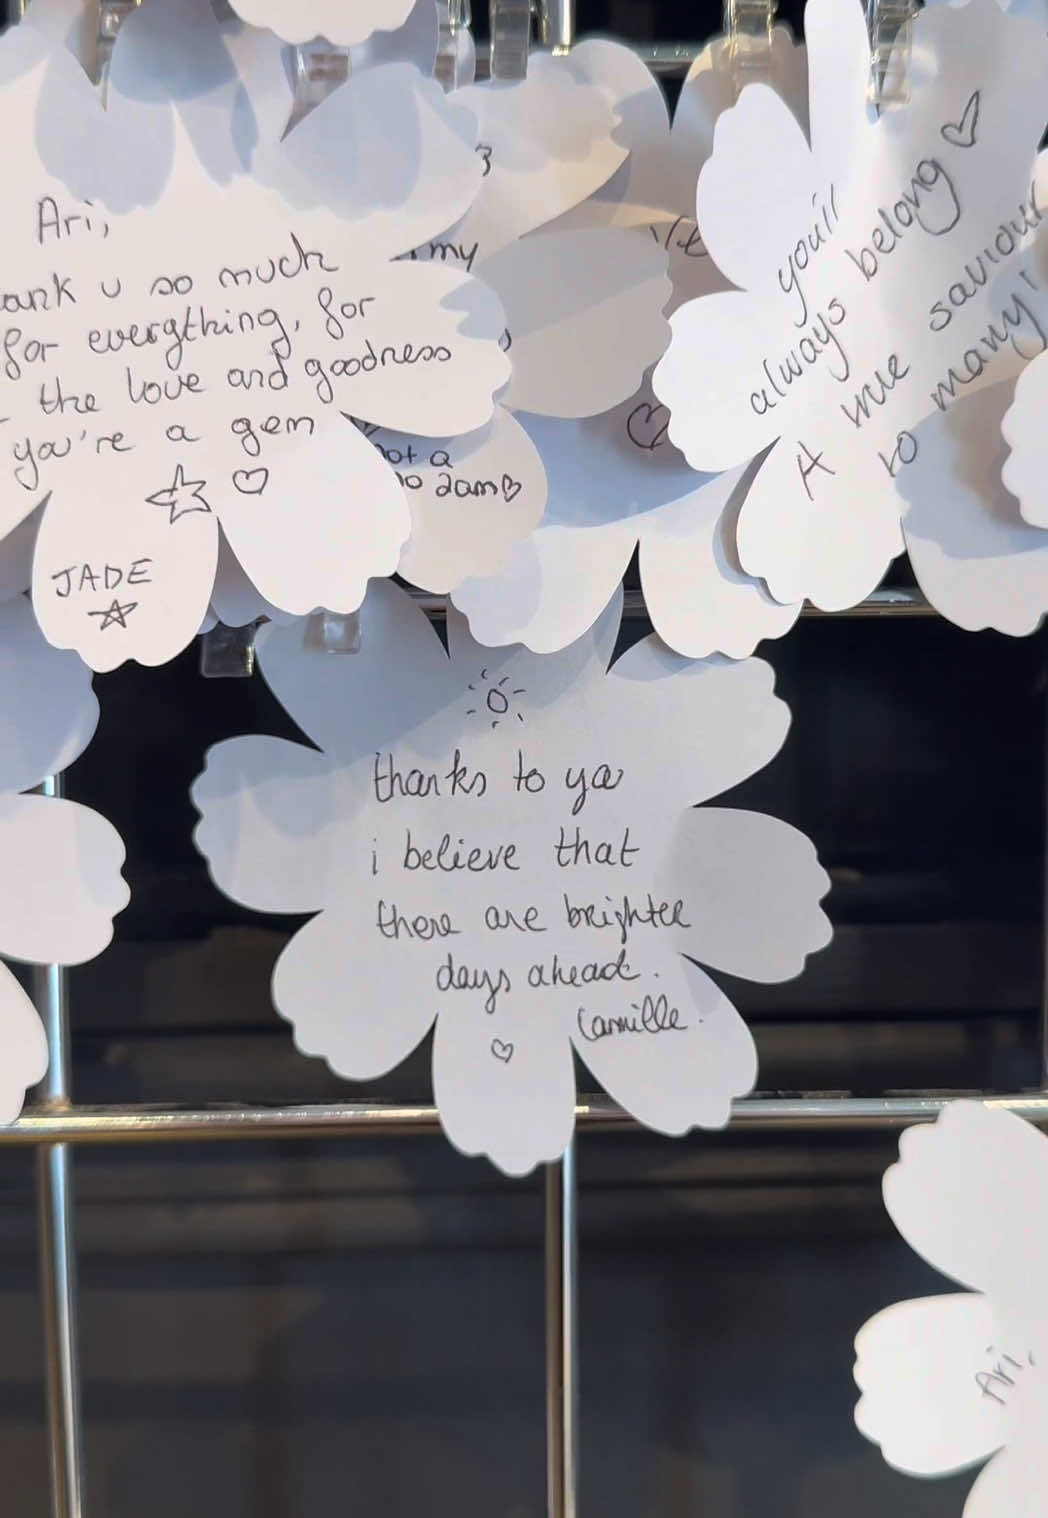 Ari,
ank u so much
for everything, for
the love and goodness
you're a gem
JADE
my
ot a
2am
you'll
always belong
A true saviour
to many!
thanks to ya
i believe that
there are brighter
days ahead.
Camille.
Ari,